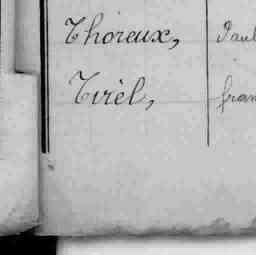 Thoreux, Paul
Tirèl, fran